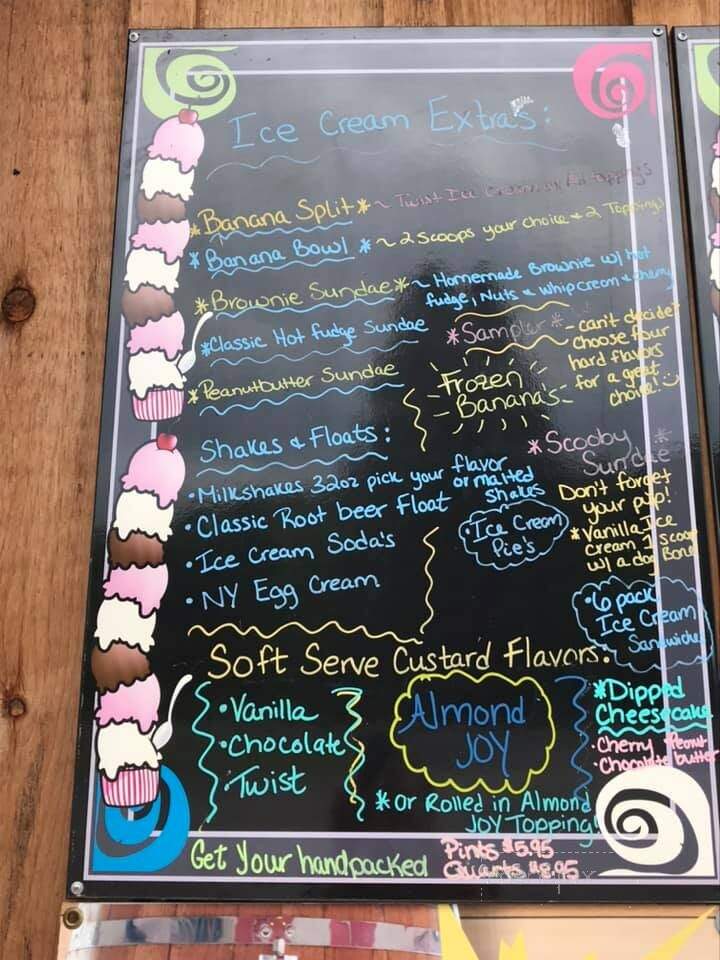 Ice Cream Extra's:
*Banana Split* ~ Twist Ice Cream toppings
*Banana Bowl * ~ 2 Scoops your choice & 2 Toppings
*Brownie Sundae* ~ Homemade Brownie w/ hot
fudge, Nuts & whipcream & cherry
*Classic Hot fudge Sundae
*Peanutbutter Sundae
*Sampler* - can't decide?
choose four
hard flavors
for a great
choice!
Frozen
Banana's
Shakes & Floats:
•Milkshakes 32oz pick your flavor
or malted
shakes
•Classic Root beer Float
•Ice Cream Soda's
•NY Egg Cream
•Ice Cream
Pie's
*Scooby *
Sundae
Don't forget
your pup!
*Vanilla Ice
Cream 1 Scoop
w/ a dog Bone
•6 pack
Ice Cream
Sandwiche
Soft Serve Custard Flavors:
•Vanilla
•Chocolate
•Twist
Almond
JOY
*Or Rolled in Almond
JOY Topping!
*Dipped
Cheesecake
•Cherry, Peanut
•Chocolate butter
Get Your handpacked
Pints $5.95
Quarts $8.95